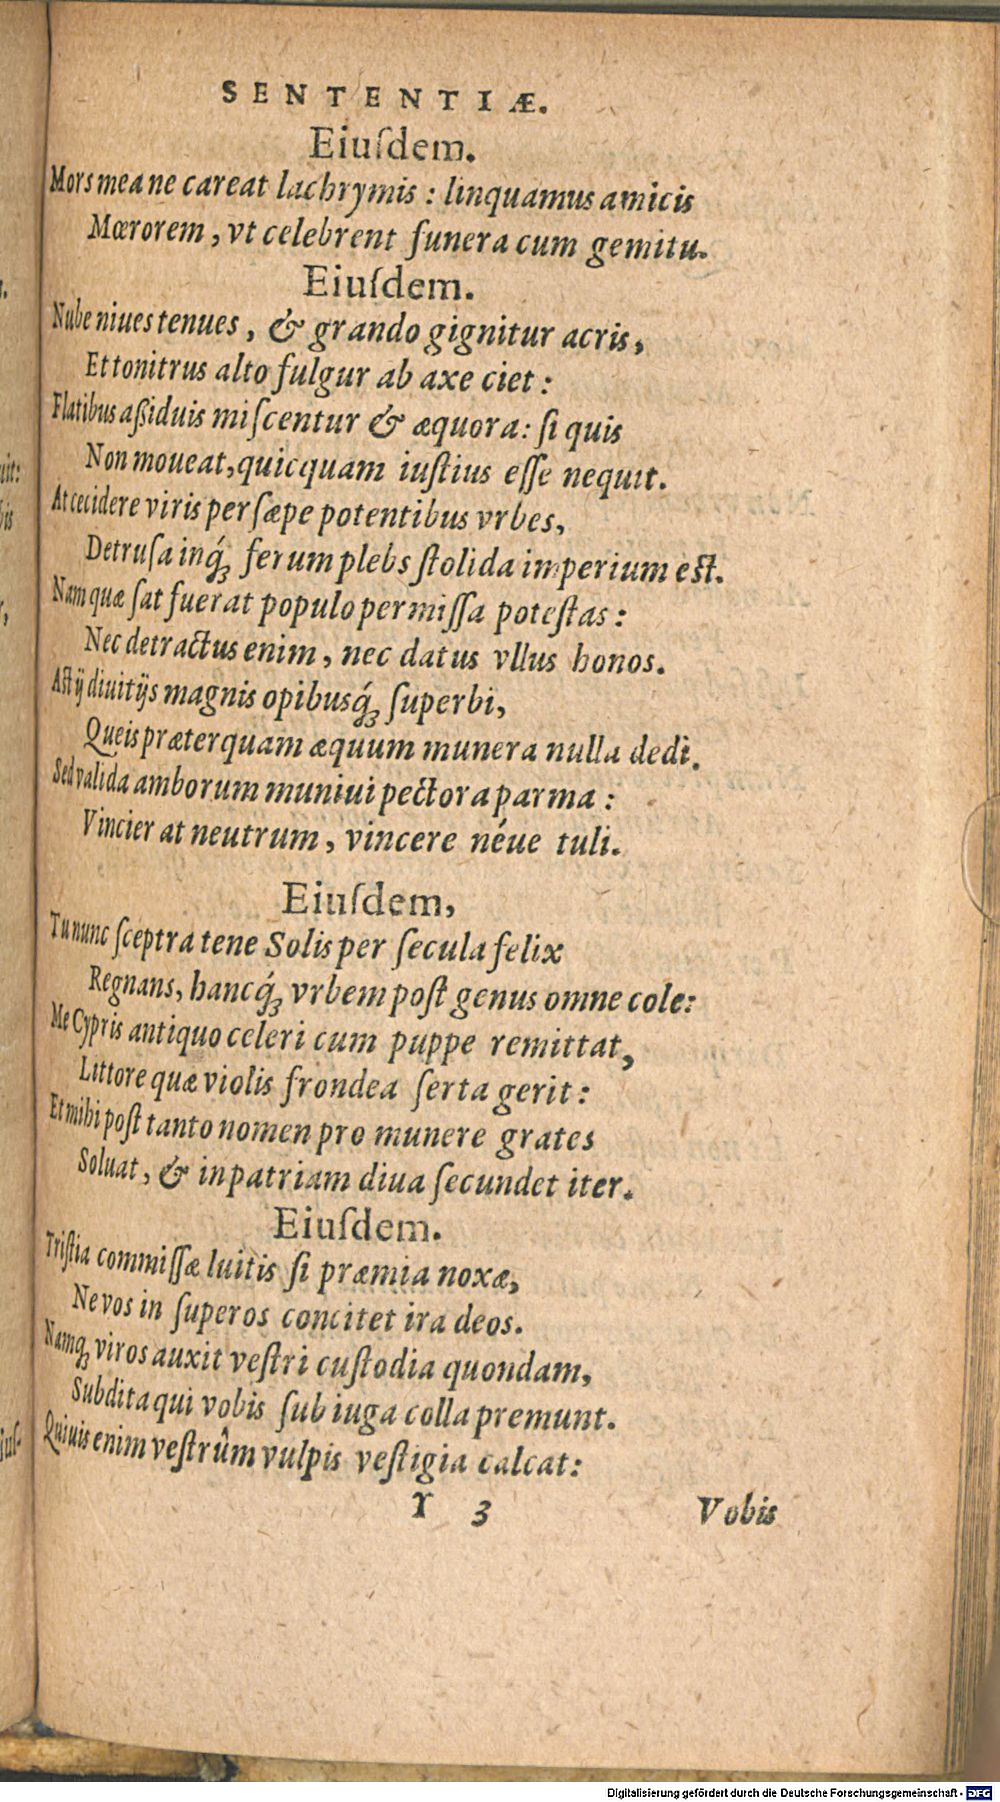 SENTENTIÆ.
Eiuſdem.
Mors mea ne careat lachrymis : linquamus amicis
Mœrorem, vt celebrent funera cum gemitu.
Eiuſdem.
Nube niues tenues, & grando gignitur acris,
Et tonitrus alto fulgur ab axe ciet :
Flatibus aßiduis miſcentur & æquora: ſi quis
Non moueat, quicquam iuſtius eſſe nequit.
At cecidere viris perſæpe potentibus vrbes,
Detruſa inq́ꝫ ferum plebs ſtolida imperium eſt.
Nam quæ ſat fuerat populo permiſſa poteſtas :
Nec detractus enim, nec datus vllus honos.
Aſt ij diuitijs magnis opibusq́ꝫ ſuperbi,
Queis præterquam æquum munera nulla dedi.
Sed valida amborum muniui pectora parma :
Vincier at neutrum, vincere néue tuli.
Eiuſdem,
Tu nunc ſceptra tene Solis per ſecula felix
Regnans, hancq́ꝫ vrbem poſt genus omne cole:
Me Cypris antiquo celeri cum puppe remittat,
Littore quæ violis frondea ſerta gerit :
Et mihi poſt tanto nomen pro munere grates
Soluat, & in patriam diua ſecundet iter.
Eiuſdem.
Triſtia commiſſæ luitis ſi præmia noxæ,
Ne vos in ſuperos concitet ira deos.
Namqꝫ viros auxit veſtri cuſtodia quondam,
Subdita qui vobis ſub iuga colla premunt.
Quiuis enim veſtrûm vulpis veſtigia calcat:
Y 3 Vobis
Digitalisierung gefördert durch die Deutsche Forschungsgemeinschaft - DFG